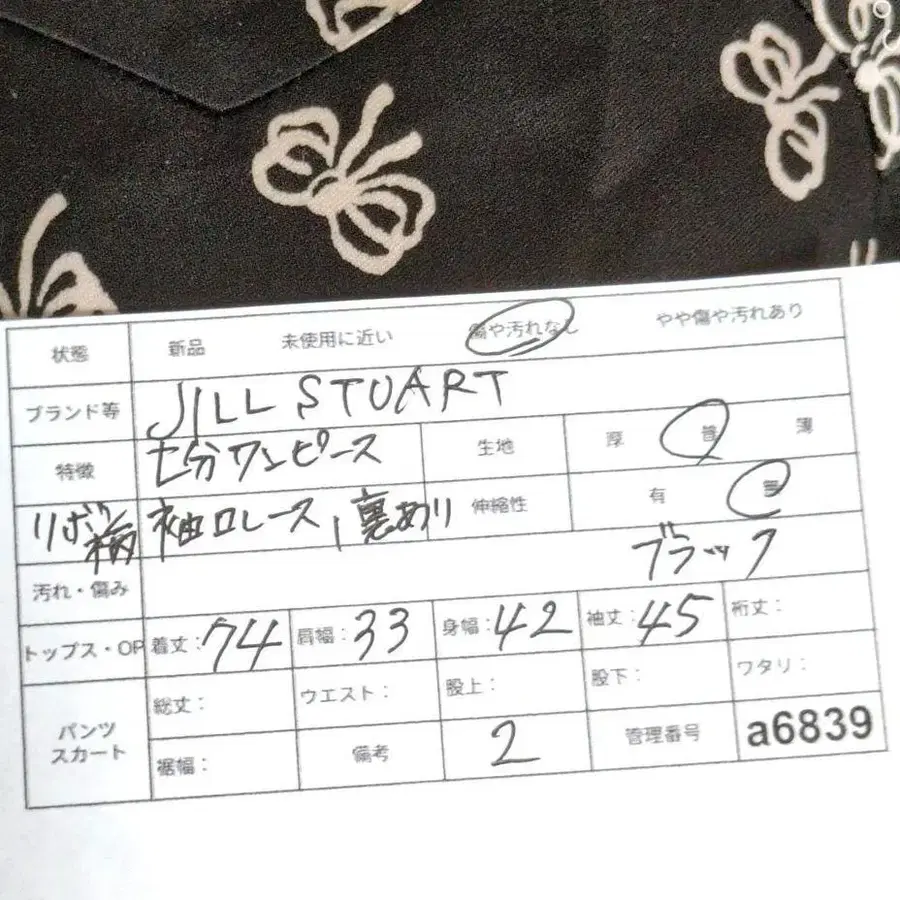 状態 新品 未使用に近い 傷や汚れなし やや傷や汚れあり
ブランド等 JILL STUART
特徴 七分ワンピース 生地 厚 普 薄
リボン柄 袖口レース、裏あり 伸縮性 有 無
汚れ・傷み ブラック
トップス・OP 着丈:74 肩幅:33 身幅:42 袖丈:45 裄丈:
パンツ スカート 総丈: ウエスト: 股上: 股下: ワタリ:
裾幅: 備考 2 管理番号 a6839